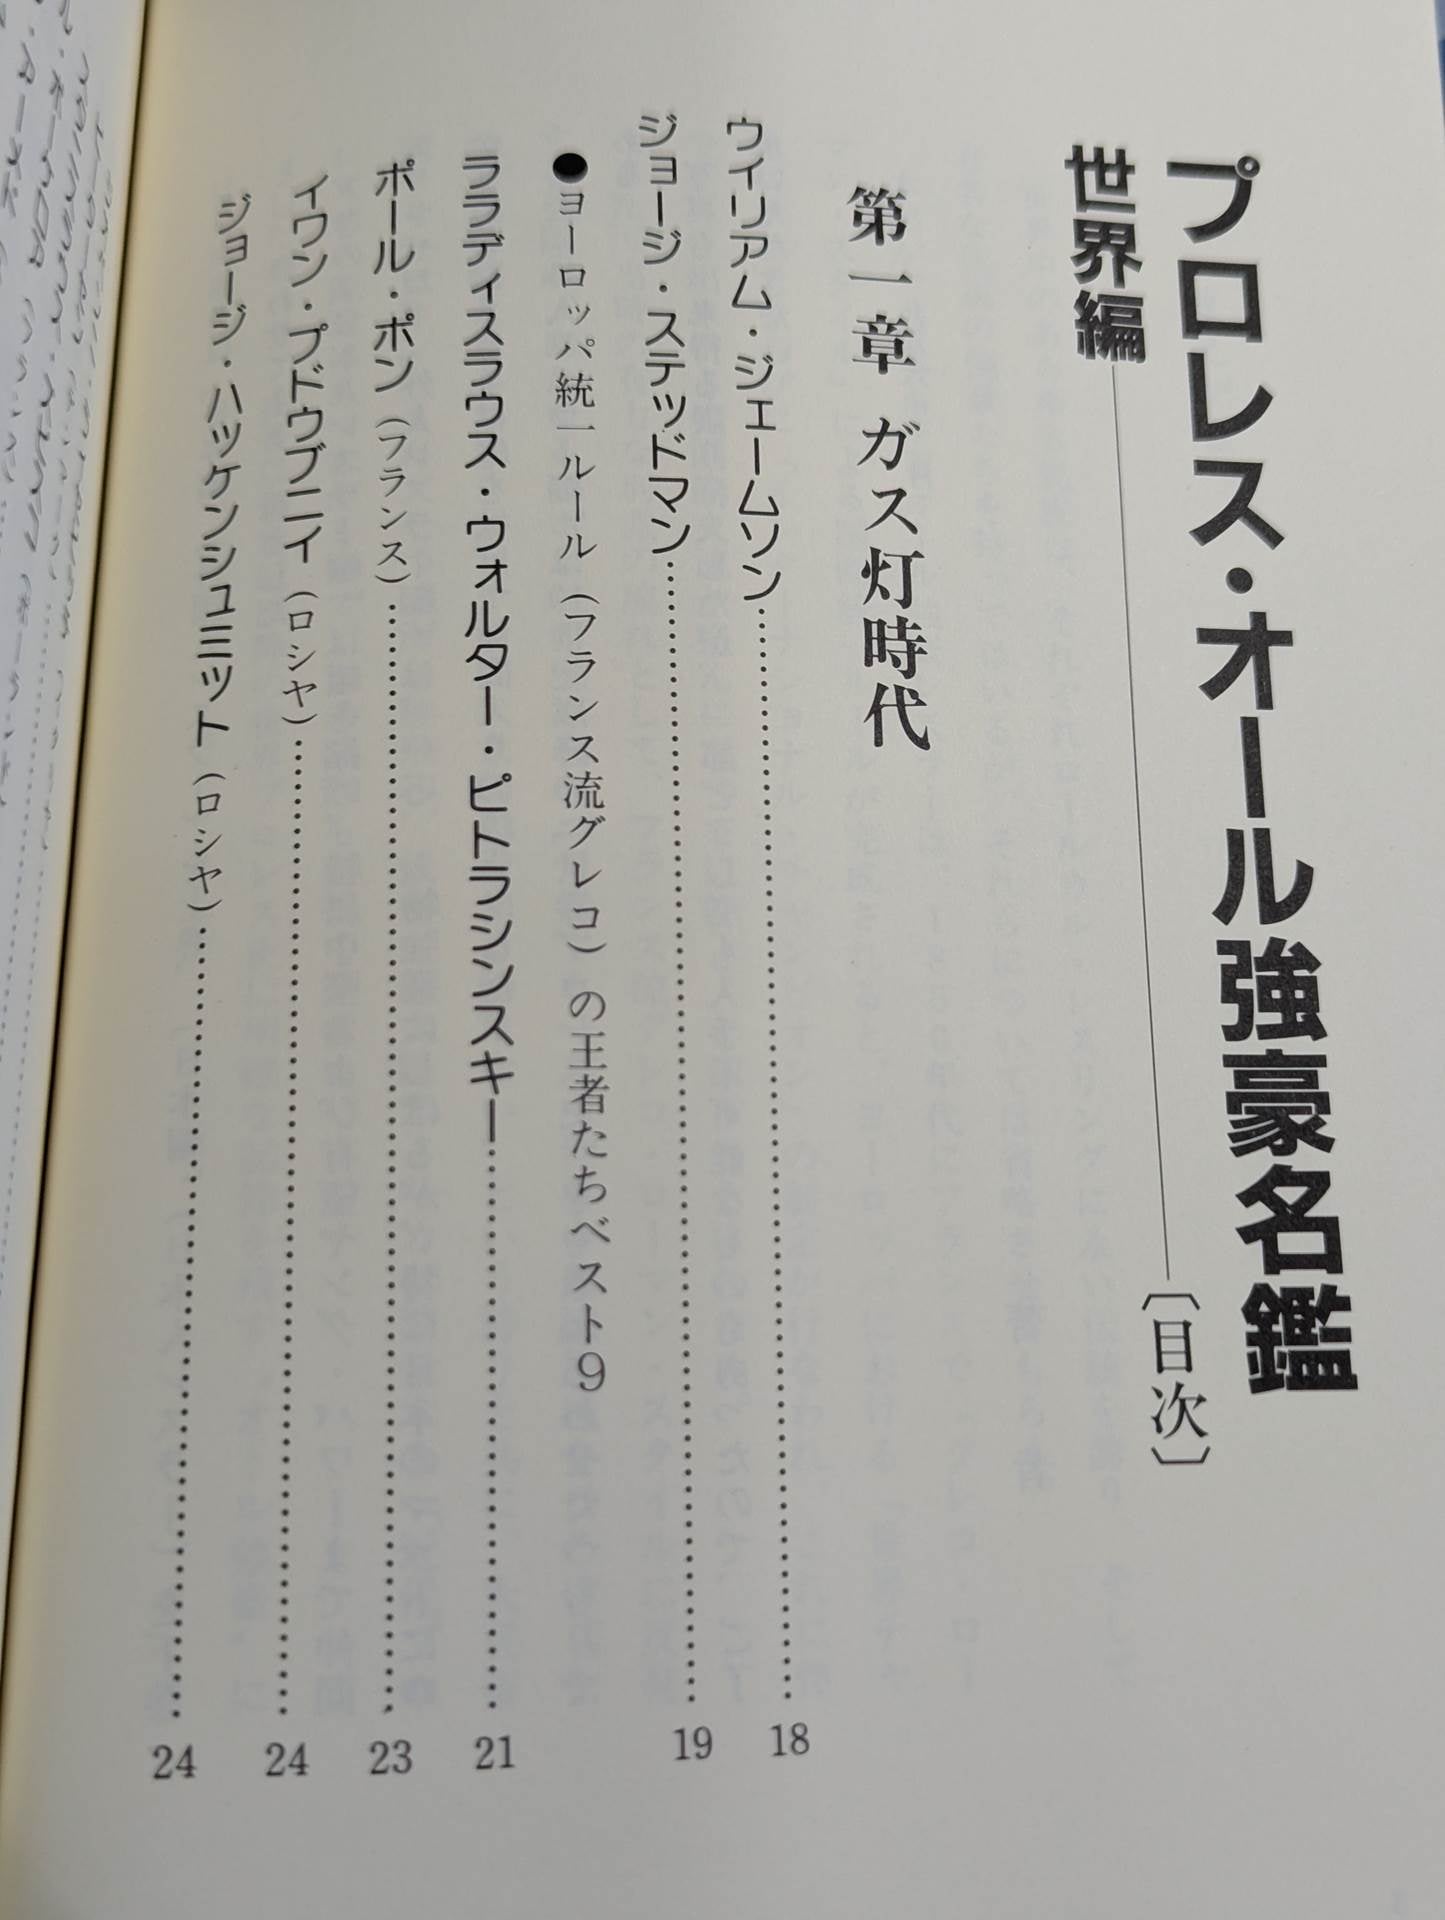 プロレス・オール強豪名鑑
世界編――――〔目次〕
第一章 ガス灯時代
ウィリアム・ジェームソン……………………18
ジョージ・ステッドマン……………………19
●ヨーロッパ統一ルール（フランス流グレコ）の王者たちベスト9
ララディスラウス・ウォルター・ピトラシンスキー……………………21
ポール・ポン（フランス）……………………23
イワン・プドウブニイ（ロシヤ）……………………24
ジョージ・ハッケンシュミット（ロシヤ）……………………24